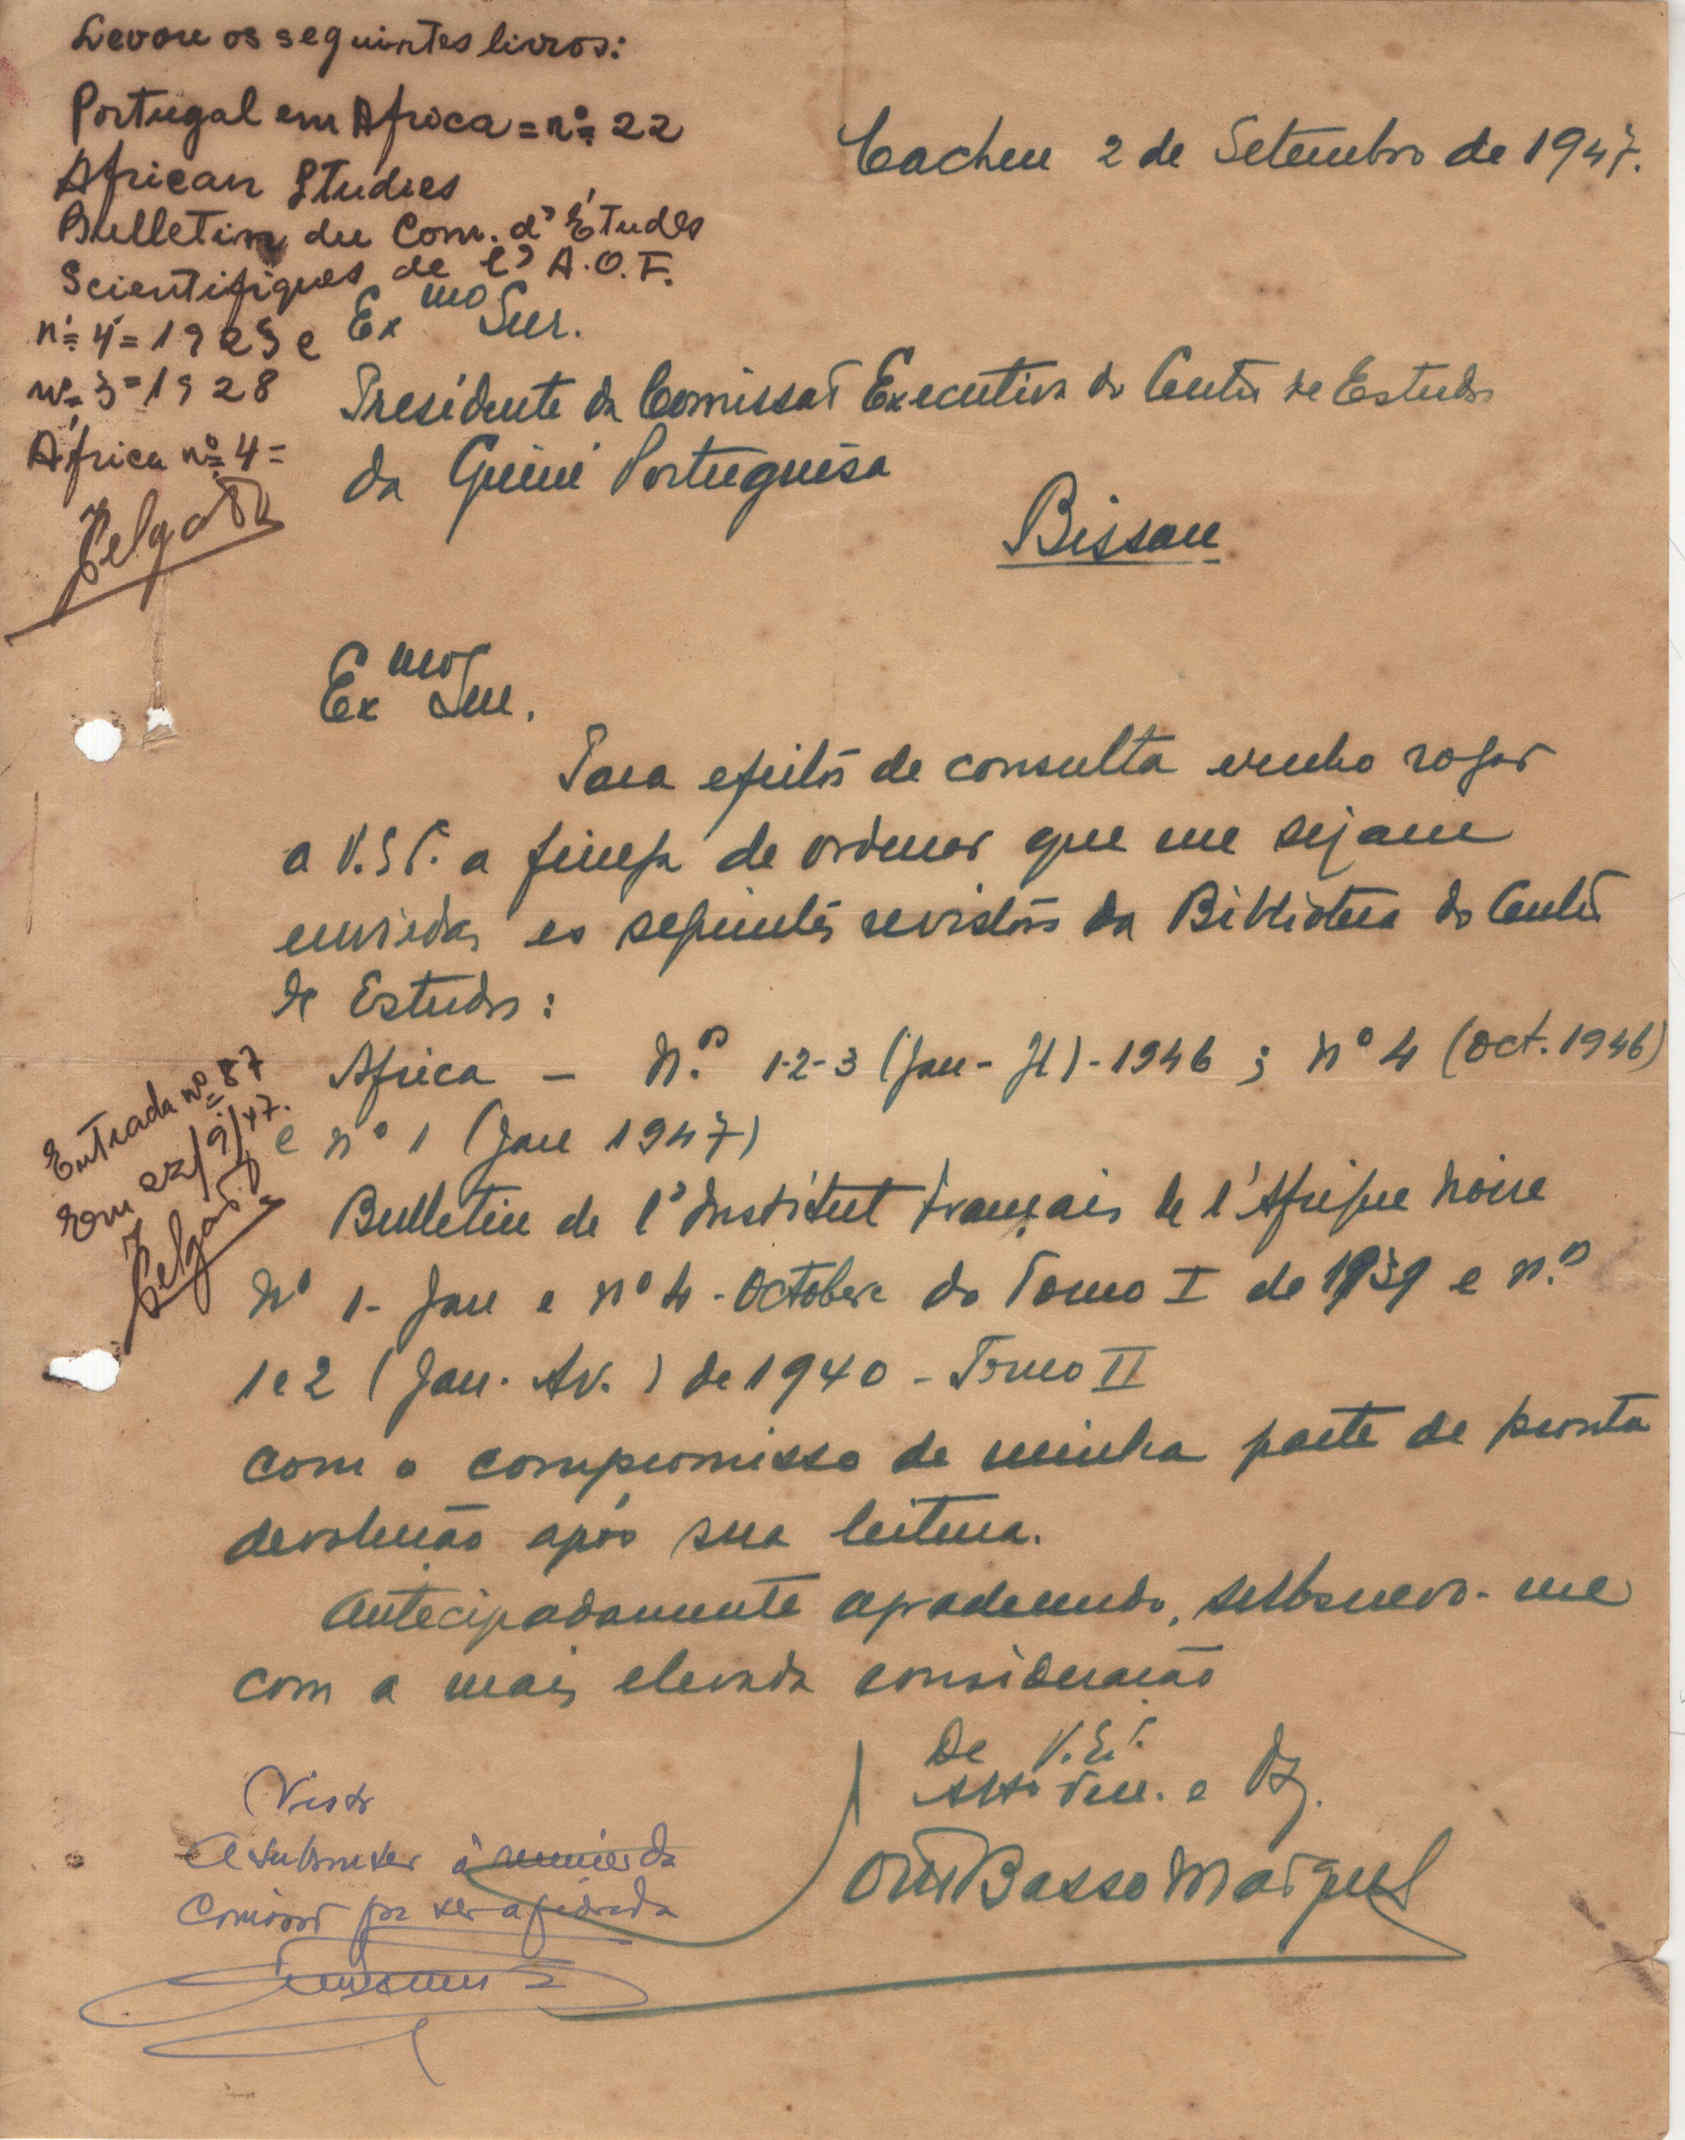 Levou os seguintes livros:
Portugal em Africa = nº 22
African Studies
Bulletin du Com. d'Études
Scientifiques de l'A.O.F.
nº 4 = 1925 e
nº 3 = 1928
África nº 4 =
Cacheu 2 de Setembro de 1947.
Exmo Snr.
Presidente da Comissão Executiva do Centro de Estudos
da Guiné Portuguêsa
Bissau
Exmo Snr.
Para efeitos de consulta venho rogar
a V. a fineza de ordenar que me sejam
enviadas as seguintes revistas da Biblioteca do Centro
de Estudos:
Africa — N.os 1-2-3 (Jan - Jl) - 1946 ; nº 4 (Oct. 1946)
e nº 1 (Jan 1947)
Bulletin de l'Institut Français de l'Afrique Noire
Nº 1 - Jan e nº 4 - Octobre do Tomo I de 1939 e n.os
1 e 2 (Jan. Av.) de 1940 - Tomo II
com o compromisso de minha parte de pronta
devolução após sua leitura.
Antecipadamente agradecendo, subscrevo-me
com a mais elevada consideração
De V. Ex.
Atto Ven. e
Basso Marques
Entrada nº 87
Em 22/9/47.
Visto
A submeter à reunião da
Comissão